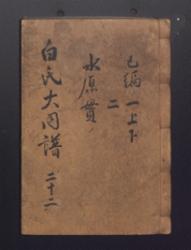 己編 一上下
二
水原貫
白氏大同譜 二十二